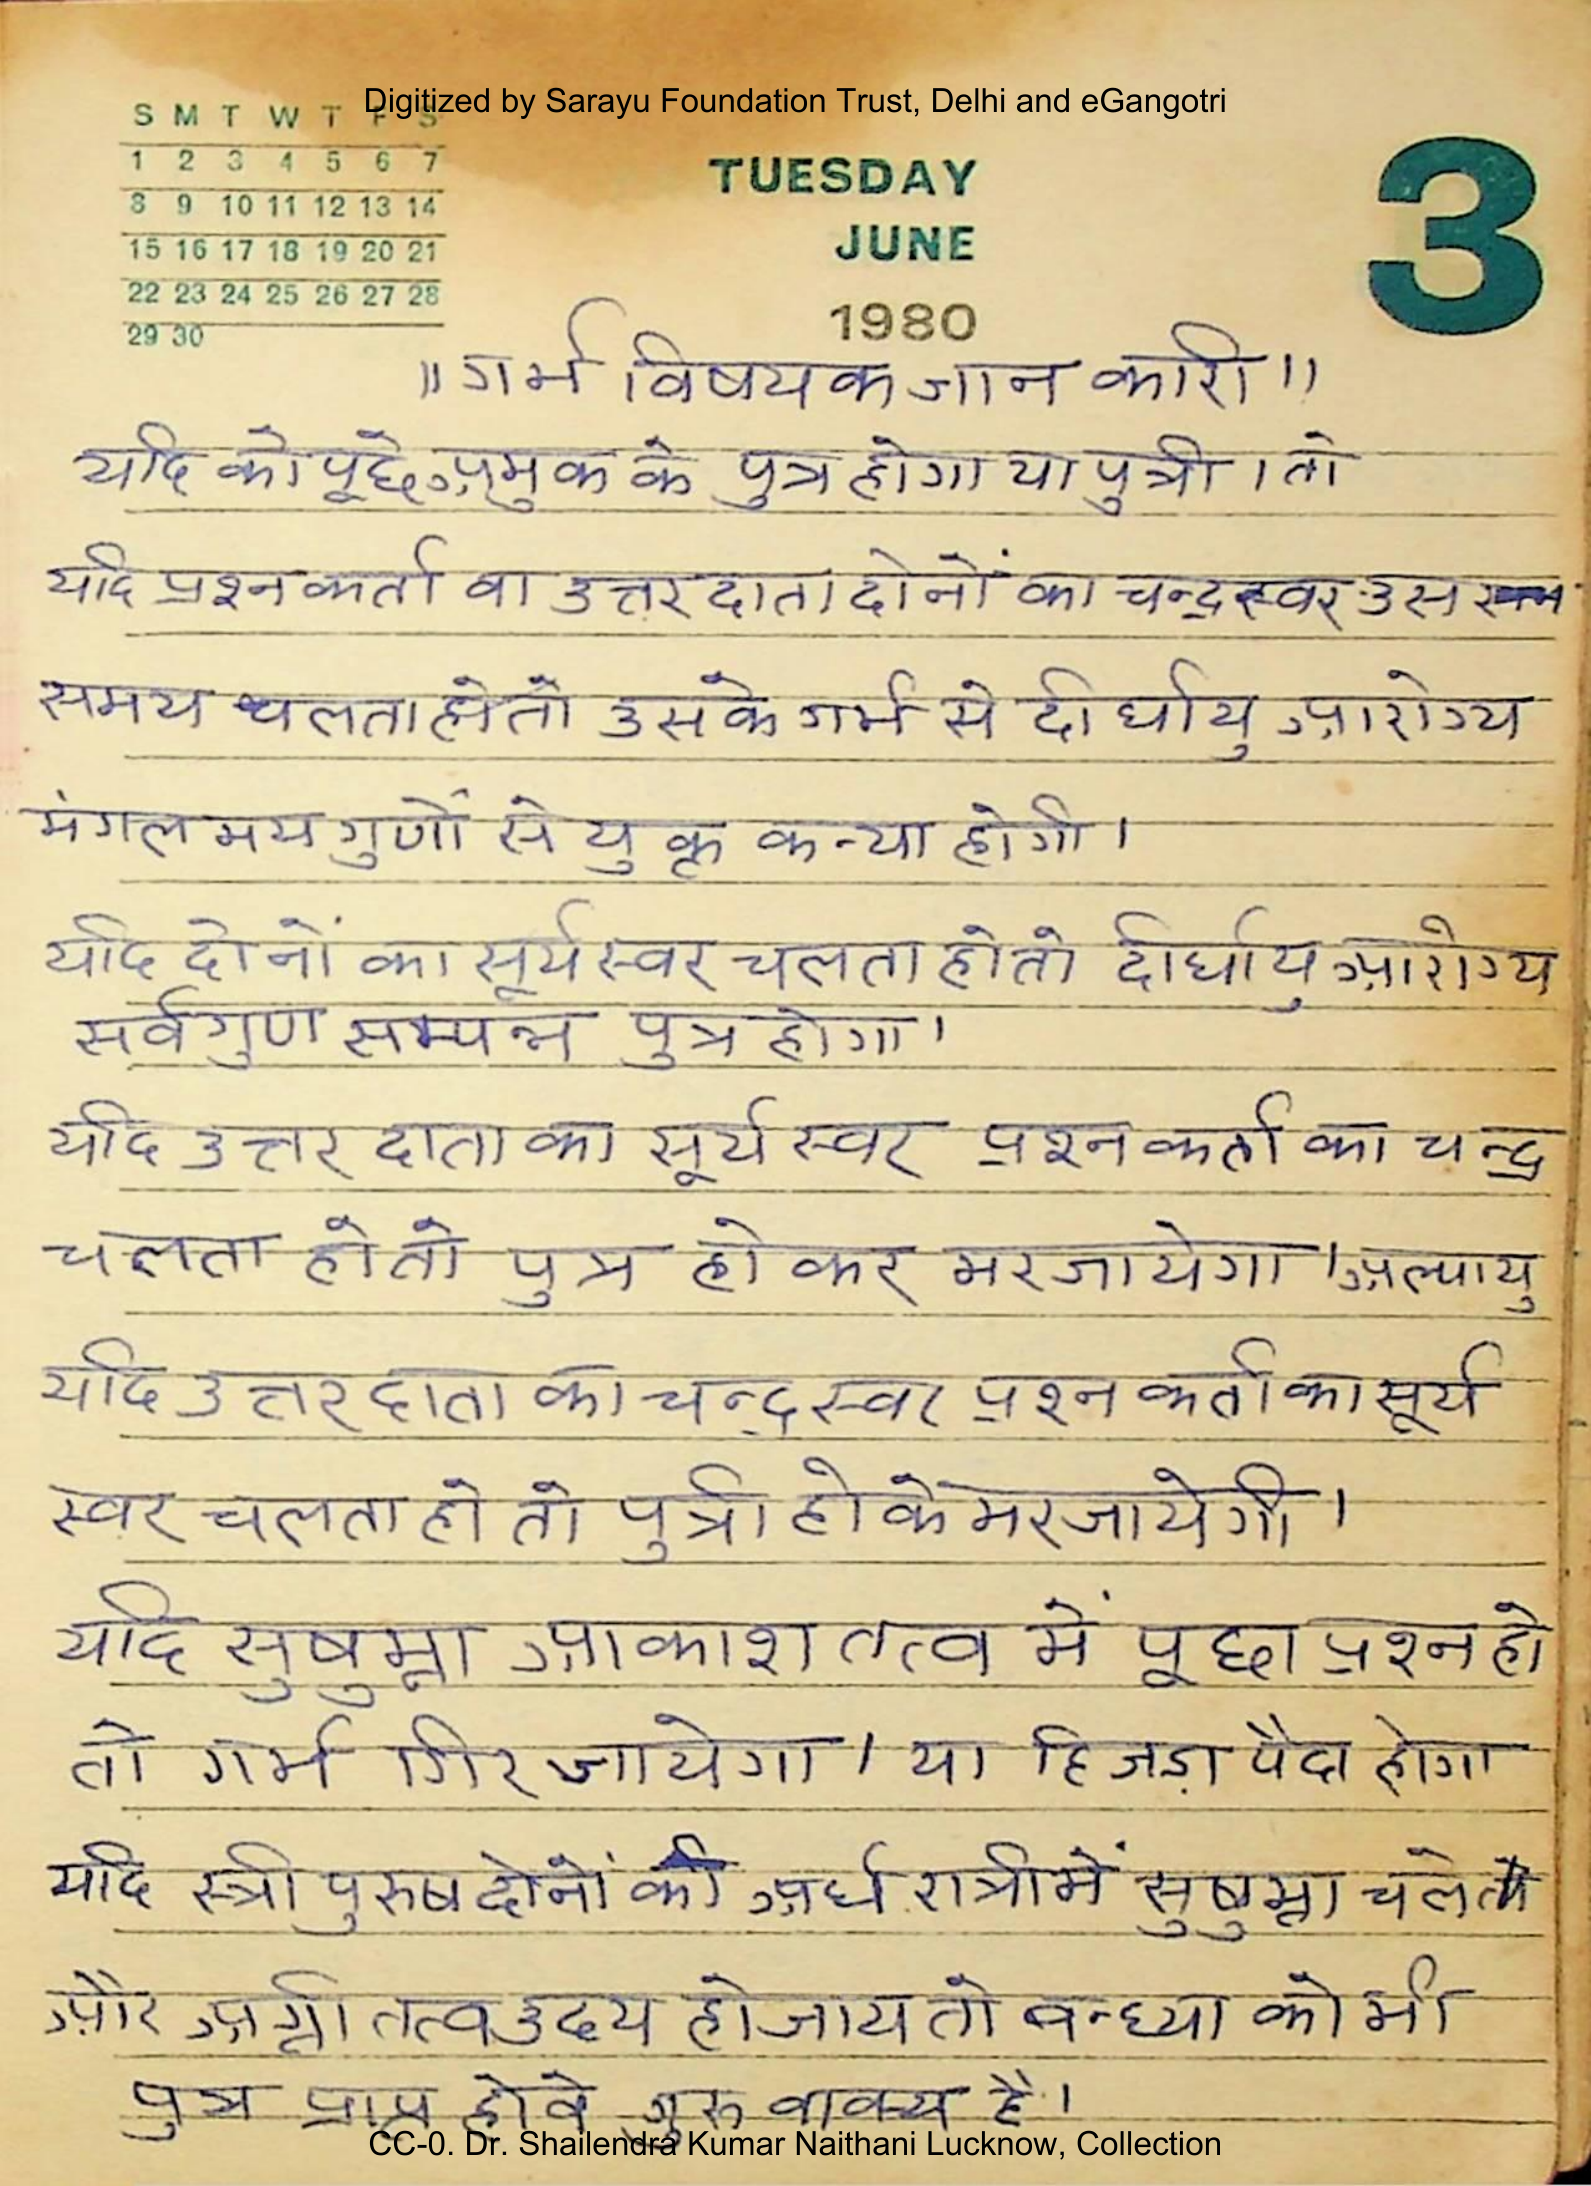 Digitized by Sarayu Foundation Trust, Delhi and eGangotri
S M T W T F S
1 2 3 4 5 6 7
8 9 10 11 12 13 14
15 16 17 18 19 20 21
22 23 24 25 26 27 28
29 30
TUESDAY
JUNE
1980
3
॥ गर्भ विषयक जान कारी ॥
यदि को पूछे अमुक के पुत्र होगा या पुत्री । तो
यदि प्रश्न कर्ता वा उत्तर दाता दोनों का चन्द्र स्वर उस
समय चलता हो तो उसके गर्भ से दीर्घायु आरोग्य
मंगल मय गुणों से युक्त कन्या होगी ।
यदि दोनों का सूर्य स्वर चलता हो तो दीर्घायु आरोग्य
सर्व गुण सम्पन्न पुत्र होगा ।
यदि उत्तर दाता का सूर्य स्वर प्रश्न कर्ता का चन्द्र
चलता हो तो पुत्र हो कर मर जायेगा । अल्पायु
यदि उत्तर दाता का चन्द्र स्वर प्रश्न कर्ता का सूर्य
स्वर चलता हो तो पुत्री हो के मर जायेगी ।
यदि सुषुम्ना आकाश तत्व में पूछा प्रश्न हो
तो गर्भ गिर जायेगा । या हिजड़ा पैदा होगा
यदि स्त्री पुरुष दोनों की अर्ध रात्री में सुषुम्ना चले
और अग्नी तत्व उदय हो जाय तो बन्ध्या को भी
पुत्र प्राप्त होवे गुरु वाक्य है ।
CC-0. Dr. Shailendra Kumar Naithani Lucknow, Collection